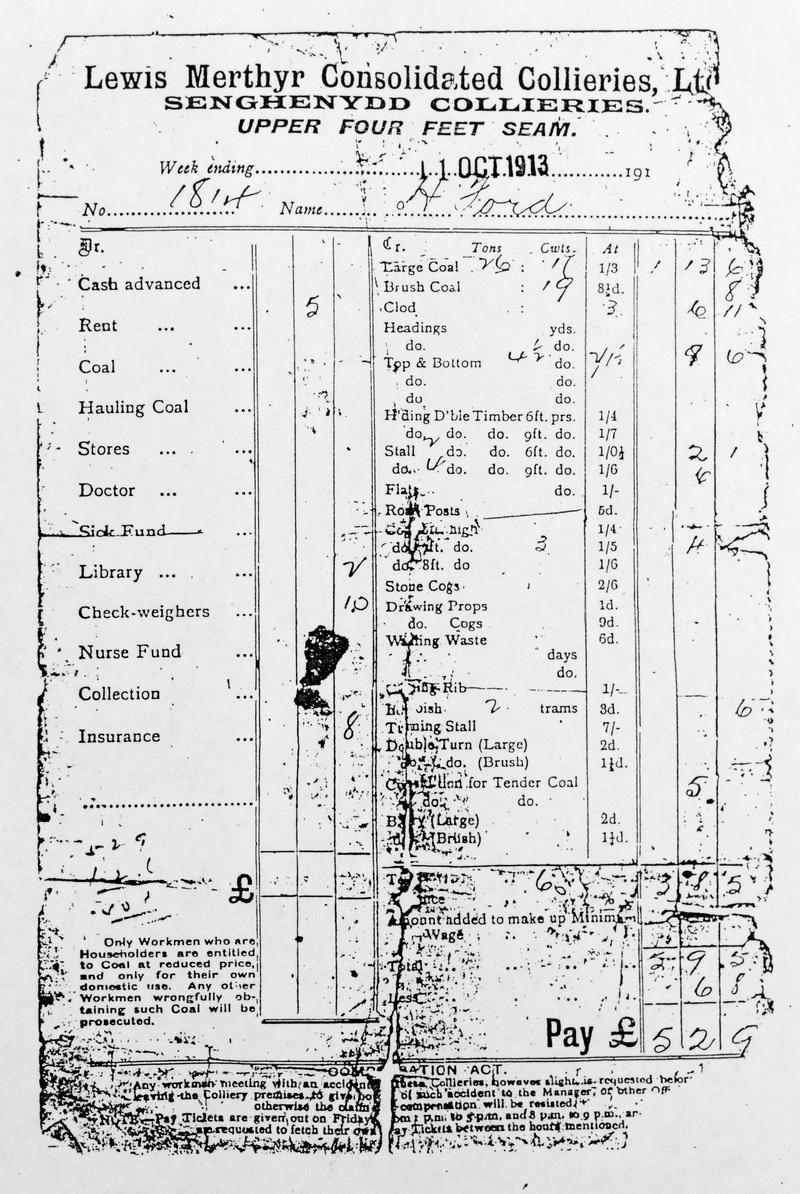 Lewis Merthyr Consolidated Collieries, Ltd
SENGHENYDD COLLIERIES.
UPPER FOUR FEET SEAM.
Week ending 11 OCT.1913 191
No. 1814 Name H Ford
Dr.
Cash advanced ... 5
Rent ... ...
Coal ... ...
Hauling Coal ...
Stores ... ...
Doctor ... ...
Sick Fund ...
Library ... ... 2
Check-weighers ... 10
Nurse Fund ...
Collection ...
Insurance ... 8
£
Only Workmen who are
Householders are entitled
to Coal at reduced price,
and only for their own
domestic use. Any other
Workmen wrongfully ob-
taining such Coal will be
prosecuted.
Cr. Tons Cwts. At
Large Coal 26 : 17 1/3 1 13 6
Brush Coal : 19 8½d. 8
Clod : 3 6 11
Headings yds.
do. do.
Top & Bottom 42 do. 2/1½ 8 6
do. do.
do do.
H'ding D'ble Timber 6ft. prs. 1/4
do. do. do. 9ft. do. 1/7
Stall do. do. 6ft. do. 1/0½ 2 1
do. 4 do. do. 9ft. do. 1/6 6
Flats do. 1/-
Road Posts 5d.
high 1/4
do. ft. do. 3 1/5 4
do. 8ft. do 1/6
Stone Cogs 2/6
Drawing Props 1d.
do. Cogs 9d.
Walling Waste 6d.
days
do.
Rib 1/-
2 trams 3d. 6
Turning Stall 7/-
Double Turn (Large) 2d.
do. (Brush) 1½d.
for Tender Coal 5
do. do.
(Large) 2d.
(Brush) 1½d.
60 3 8 5
Amount added to make up Minimum
Wage
Total 5 9 5
Less 6 8
Pay £ 5 2 9
COM ATION ACT.
Any workman meeting with an accident these Collieries, however slight, is requested before
leaving the Colliery premises to give of such accident to the Manager, or other
otherwise the claim compensation will be resisted.
NOTE—Pay Tickets are given out on Friday 1 p.m. to 5 p.m. and 8 p.m. to 9 p.m.
are requested to fetch their own Pay Tickets between the hours mentioned.